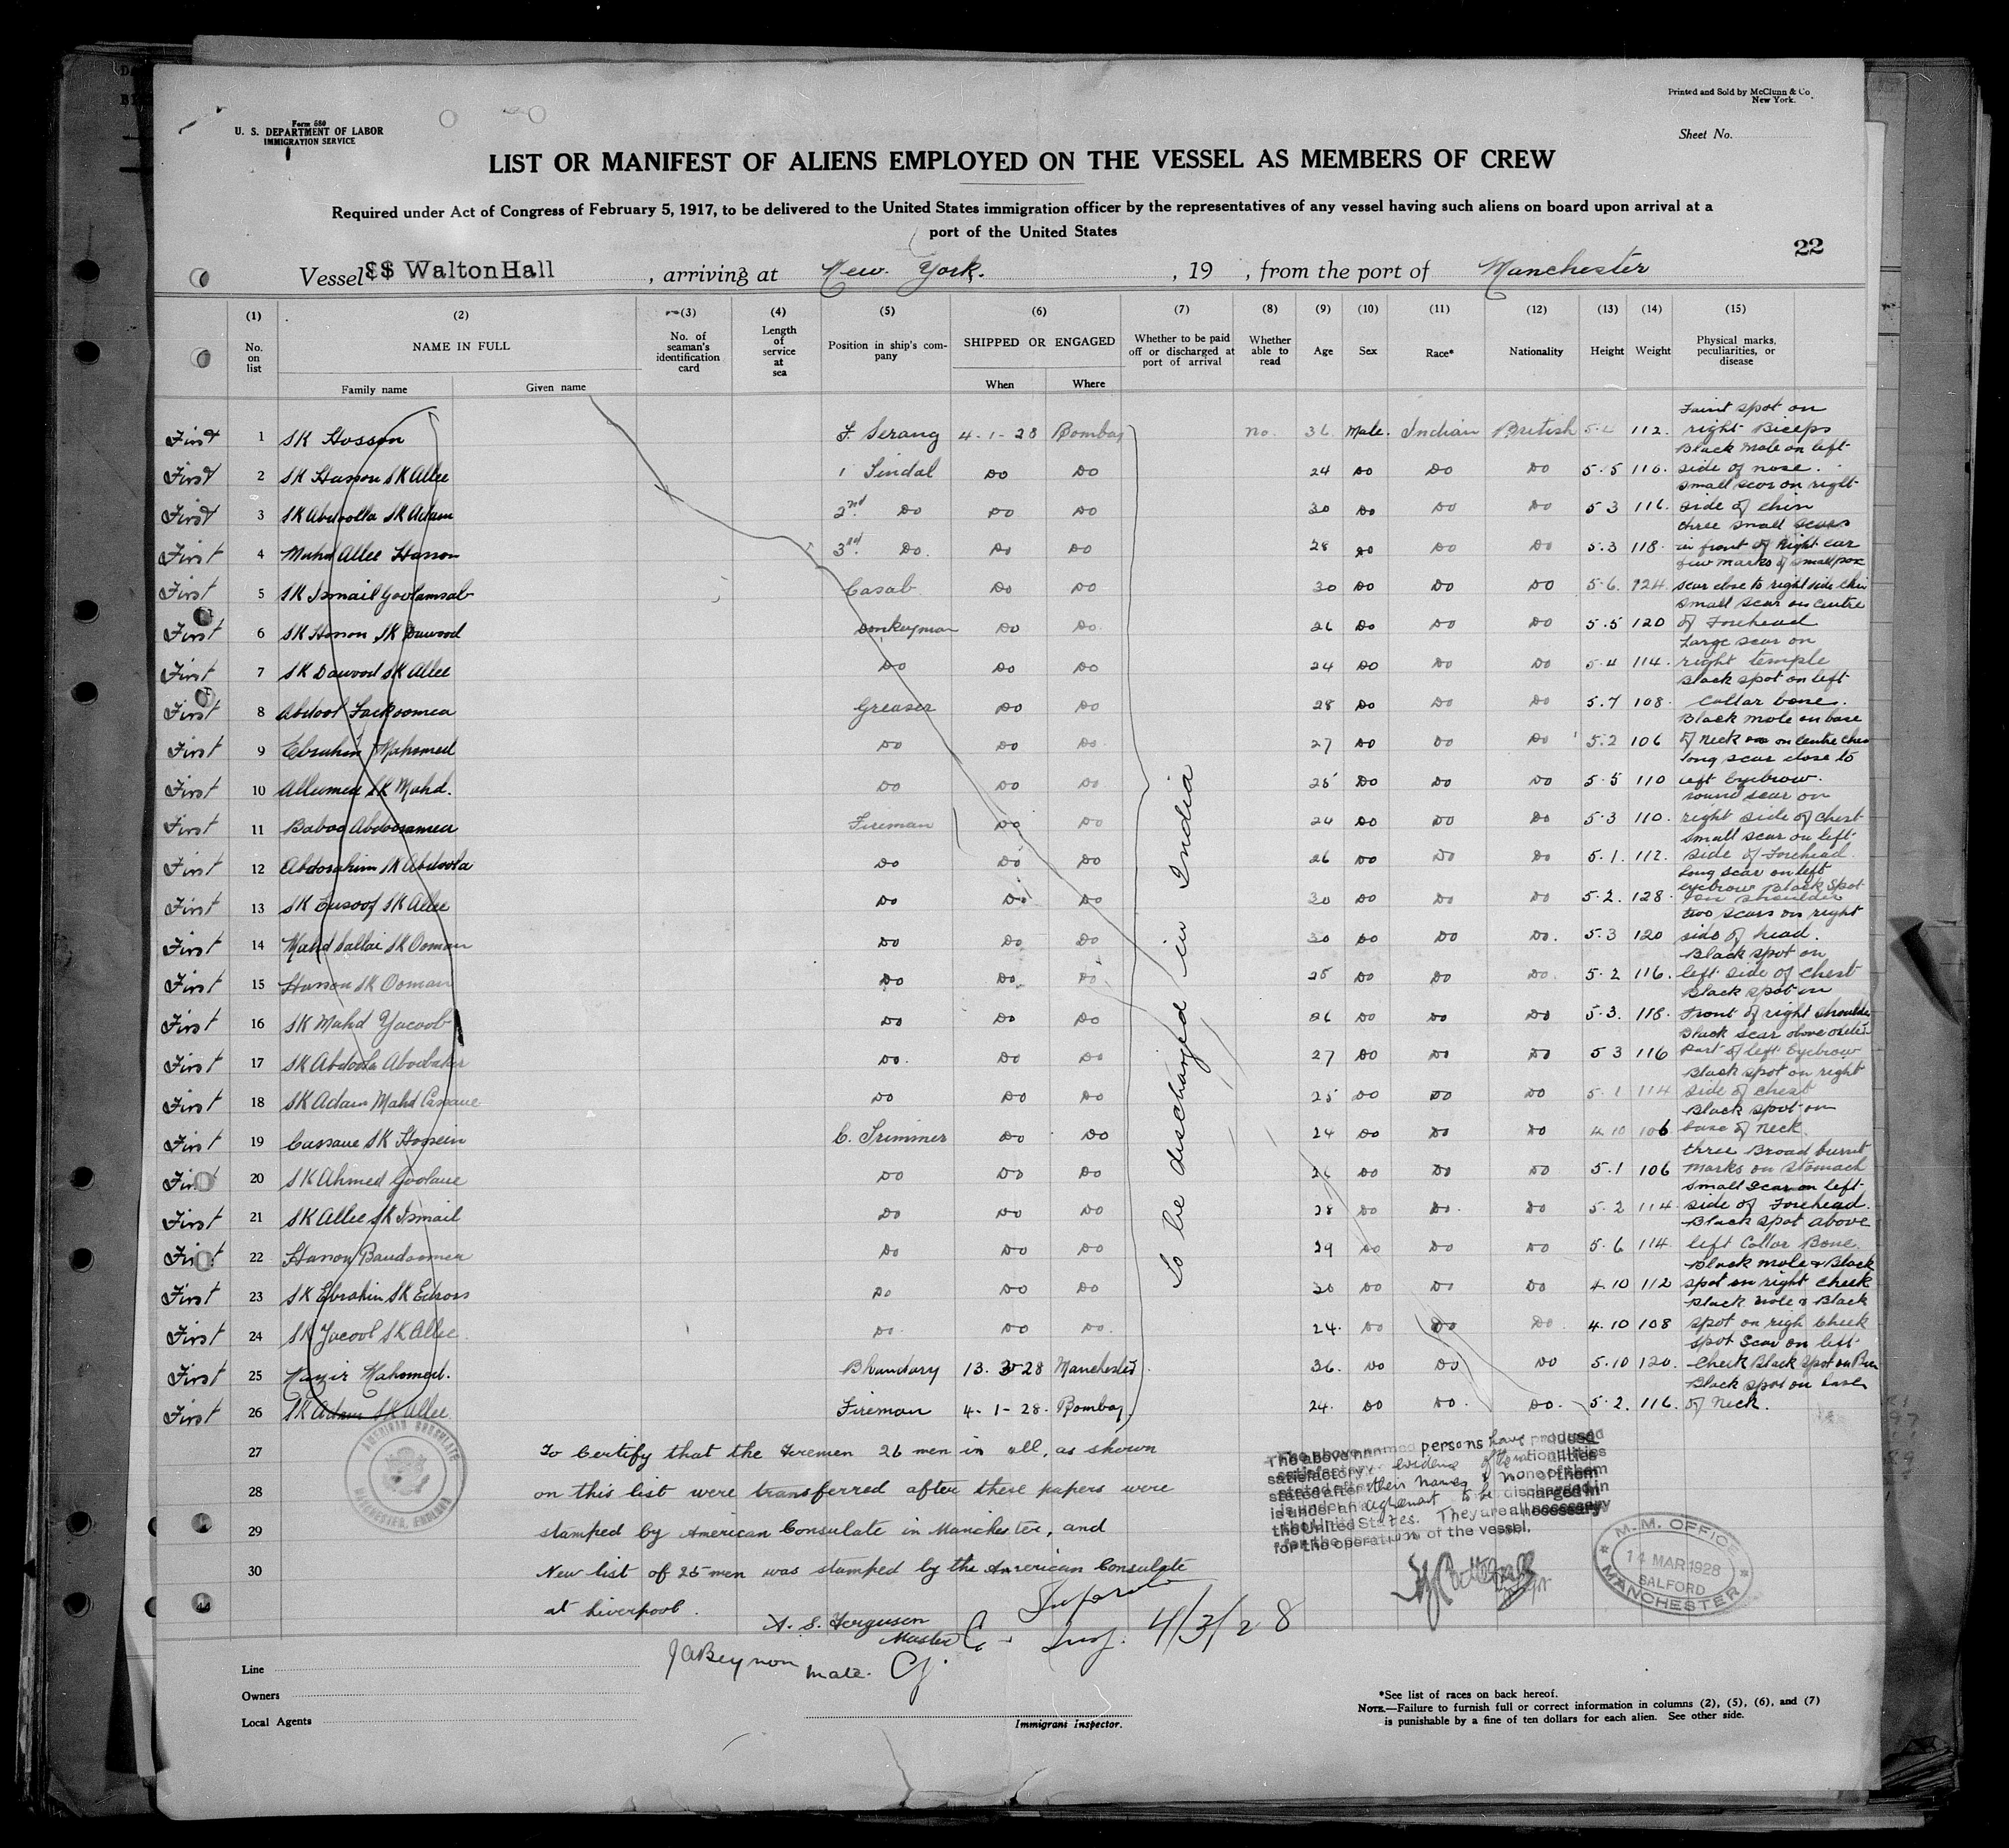 Printed and Sold by McClunn & Co
New York.
Form 680
U. S. DEPARTMENT OF LABOR
IMMIGRATION SERVICE
Sheet No.
LIST OR MANIFEST OF ALIENS EMPLOYED ON THE VESSEL AS MEMBERS OF CREW
Required under Act of Congress of February 5, 1917, to be delivered to the United States immigration officer by the representatives of any vessel having such aliens on board upon arrival at a
port of the United States
22
Vessel SS Walton Hall , arriving at New York. , 19 , from the port of Manchester
(1) (2) (3) (4) (5) (6) (7) (8) (9) (10) (11) (12) (13) (14) (15)
No. on list NAME IN FULL No. of seaman's identification card Length of service at sea Position in ship's company SHIPPED OR ENGAGED Whether to be paid off or discharged at port of arrival Whether able to read Age Sex Race* Nationality Height Weight Physical marks, peculiarities, or disease
Family name Given name When Where
First 1 SK Hosson F. Serang 4-1-28 Bombay no. 36 Male. Indian British 112. Faint spot on right Biceps
First 2 SK Hasson SK Allee 1 Tindal Do Do 24 Do Do Do 5.5 110. Black Mole on left side of nose.
First 3 SK Abdoolla SK Adam 2nd Do Do Do 30 Do Do Do 5 3 116. small scar on right side of chin
First 4 Mahd Allee Hasson 3rd Do. Do Do 28 Do Do Do 5.3 118. three small scars in front of Right ear
First 5 SK Ismail Goolamsab Casab Do Do 30 Do Do Do 5.6. 124. few marks of small pox scar close to right side chin
First 6 SK Hosson SK Dawood Donkeyman Do Do. 26 Do Do Do 5.5 120 small scar on centre of Forehead
First 7 SK Dawood SK Allee Do Do Do 24 Do Do Do 5.4 114. Large scar on right temple
First 8 Abdool Greaser Do Do 28 Do Do Do 5.7 108. Black spot on left Collar bone.
First 9 Ebrahim Mahomed Do Do Do 27 Do Do Do 5.2 106 Black mole on base of neck on centre
First 10 SK Mahd. Do Do Do 25 Do Do Do 5.5 110 Long scar close to left Eyebrow.
First 11 Fireman Do Do 24 Do Do Do 5.3 110. round scar on right side of chest
First 12 Abdorahim SK Abdoola Do Do Do 26 Do Do Do 5.1. 112. small scar on left side of Forehead
First 13 SK Eusoof SK Allee Do Do Do 30 Do Do Do 5.2. 128. Long scar on left eyebrow Black Spot on shoulder
First 14 Mahd Sallai SK Ooman Do Do Do 30 Do Do Do. 5.3 120 two scars on right side of head.
First 15 Hasson SK Ooman Do Do Do 25 Do Do Do. 5.2 116. Black spot on left side of chest
First 16 SK Mahd Yacoob Do Do Do 26 Do Do Do 5.3. 118. Black spot on Front of right shoulder
First 17 SK Abdoola Aboobaker Do. Do Do 27 Do Do Do 5 3 116 Black scar above part of left Eyebrow
First 18 SK Adam Mahd Do Do Do 25 Do Do Do 5.1 114 Black spot on right side of chest
First 19 Cassane SK Hossein C. Trimmer Do Do 24 Do Do Do 4.10 106 Black spot on base of neck.
First 20 SK Ahmed Goolane Do Do Do 26 Do Do Do 5.1 106 three Broad burnt marks on stomach
First 21 SK Allee SK Ismail Do Do Do 28 Do Do. Do 5.2 114. small scar on left side of Forehead.
First 22 Hasson Do Do Do 29 Do Do Do 5.6 114. Black spot above left Collar Bone.
First 23 SK Ebrahim SK Do Do Do 30 Do Do Do 4.10 112 Black mole & Black spot on right cheek
First 24 SK Yacool SK Allie Do Do Do. 24. Do Do Do 4.10 108 Black mole & Black spot on righ cheek
First 25 Nazir Mahomed. Bhandary 13. 3 28 Manchester. 36. Do Do Do 5.10 120. spot Scar on left cheek Black Spot on
First 26 SK Adam SK Allee. Fireman 4-1-28. Bombay. 24. Do Do. Do. 5.2. 116. Black spot on base of neck.
To be discharged in India
27 To Certify that the Firemen 26 men in all, as shown
28 on this list were transferred after these papers were
29 stamped by American Consulate in Manchester, and
30 New list of 25 men was stamped by the American Consulate
at Liverpool.
A. S. Ferguson
Master
J A Beynon Mate.
4/3/28
AMERICAN CONSULATE
MANCHESTER, ENGLAND
The above named persons have produced
satisfactory evidence of nationalities
stated after their names & none of them
is under an agreement to be discharged in
the United States. They are all necessary
for the operation of the vessel.
M.M. OFFICE
14 MAR 1928
SALFORD
MANCHESTER
Line
Owners
Local Agents
Immigrant Inspector.
*See list of races on back hereof.
NOTE.—Failure to furnish full or correct information in columns (2), (5), (6), and (7)
is punishable by a fine of ten dollars for each alien. See other side.